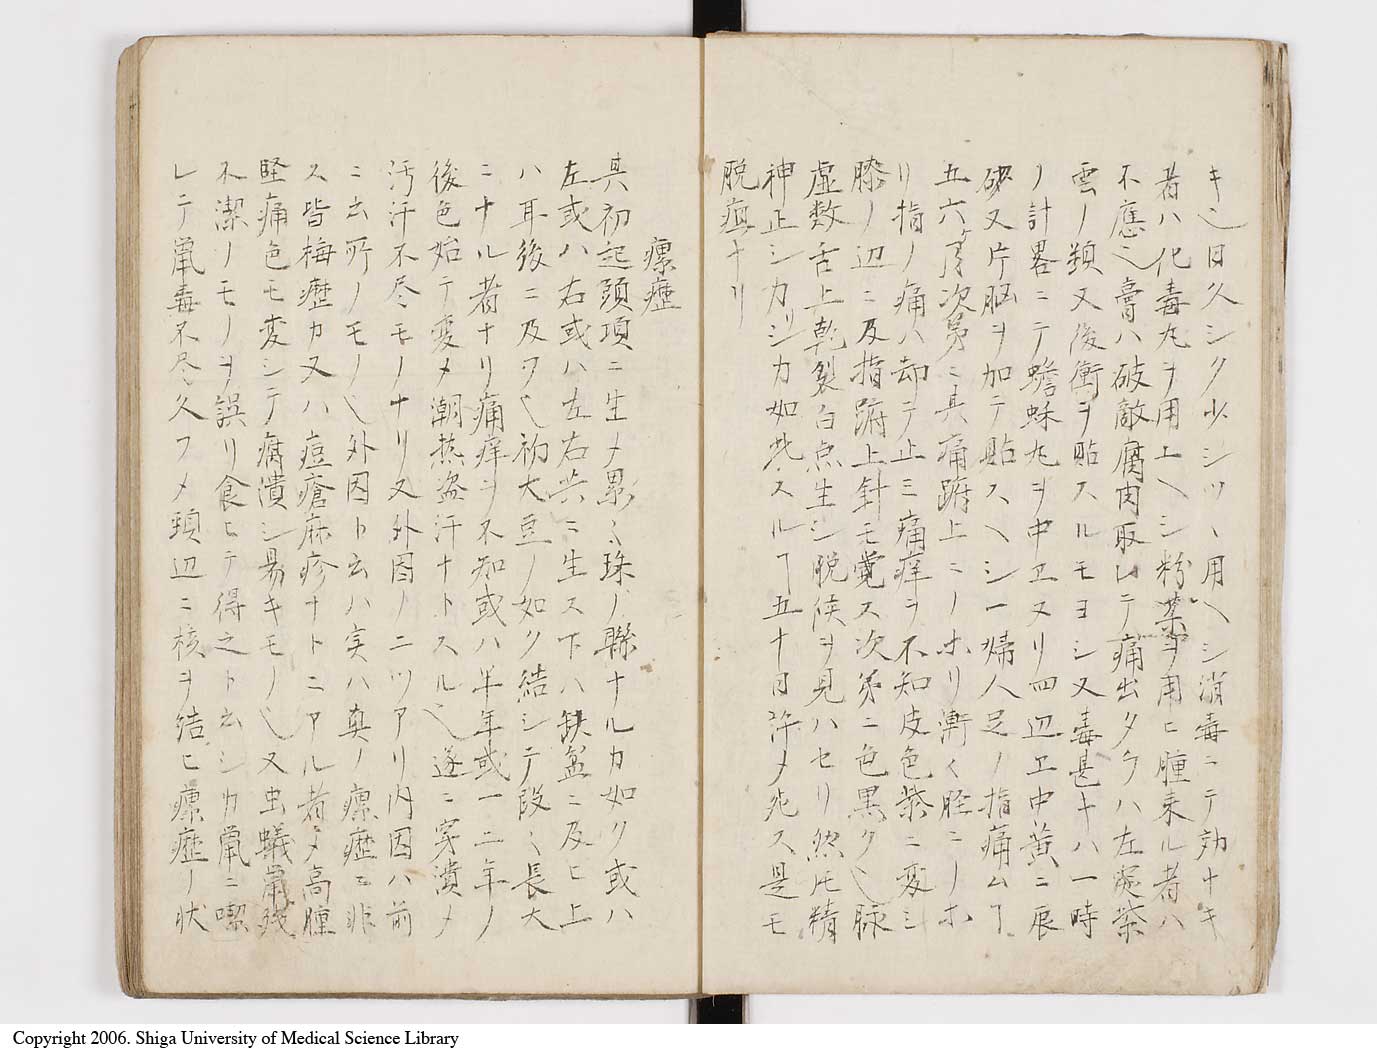 キ乄日久シク少シツヽ用ヘシ消毒ニテ効ナキ
者ハ化毒丸ヲ用上ヘシ粉薬ヲ用ヒ腫来ル者ハ
不應乄膏ハ破敵腐肉取レテ痛出タラハ左突紫
雲ノ類又後衝ヲ貼スルモヨシ又毒甚キハ一時
ノ計畧ニテ蟾蘇丸ヲ中エヌリ四辺エ中黄ニ辰
砂又片脳ヲ加テ貼スヘシ一婦人足ノ指痛ムヿ
五六ケ月次第ニ其痛跗上ニノホリ漸く脛ニノホ
リ指ノ痛ハ却テ止ミ痛痒ヲ不知皮色紫ニ変シ
膝ノ辺ニ及指跗上針モ覚ス次第ニ色黒ク乄脉
虚数舌上乾裂白点生シ脱候ヲ見ハセリ然圧精
神正シカリシカ如此スルヿ五十日許メ死ス是モ
脱疽ナリ
瘰癧
其初起頭項ニ生メ累〻珠ノ聯ナルカ如ク或ハ
左或ハ右或ハ左右共ニ生ス下ハ缺盆ニ及ヒ上
ハ耳後ニ及フ乄初大豆ノ如ク結シテ段〻長大
ニナル者ナリ痛痒ヲ不知或ハ半年或一二年ノ
後色始テ変メ潮热盗汗ナトスル乄遂ニ穿潰メ
汚汗不尽モノナリ又外因ノ二ツアリ内因ハ前
ニ云所ノモノ乄外因ト云ハ実ハ真ノ瘰癧ニ非
ス皆梅癧カ又ハ痘瘡麻疹ナトニアル者メ高腫
堅痛色モ変シテ腐潰シ易キモノ乄又虫蟻鼠残
不潔ノモノヲ誤リ食ヒテ得之ト云シカ鼠ニ喫
レテ鼠毒不尽久フメ頸辺ニ核ヲ結ヒ瘰癧ノ状
Copyright 2006. Shiga University of Medical Science Library